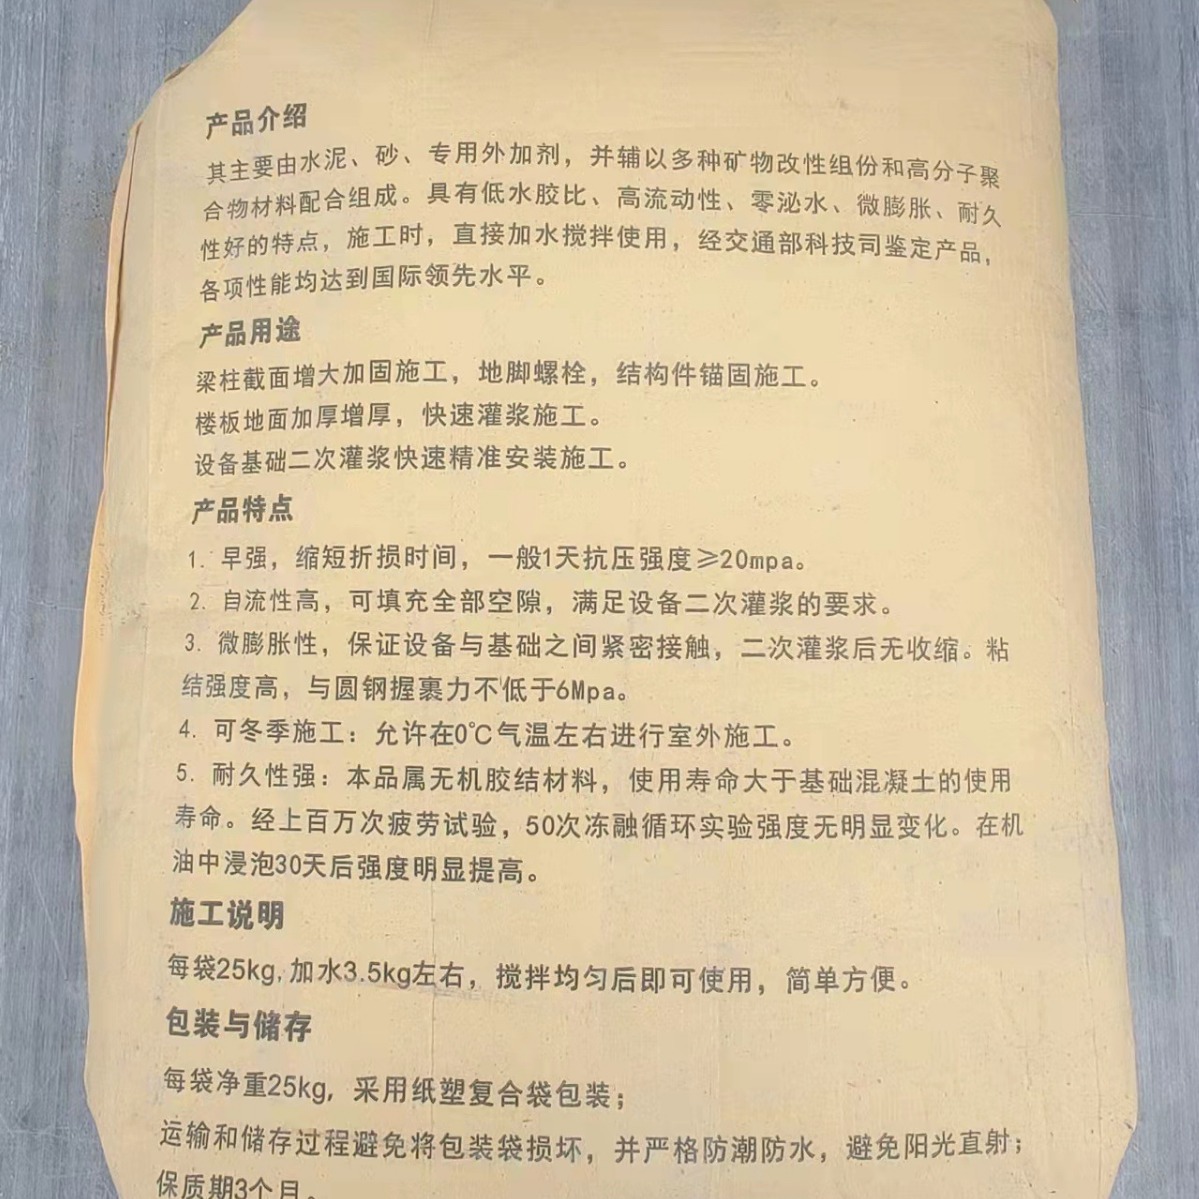 产品介绍
其主要由水泥、砂、专用外加剂，并辅以多种矿物改性组份和高分子聚
合物材料配合组成。具有低水胶比、高流动性、零泌水、微膨胀、耐久
性好的特点，施工时，直接加水搅拌使用，经交通部科技司鉴定产品，
各项性能均达到国际领先水平。
产品用途
梁柱截面增大加固施工，地脚螺栓，结构件锚固施工。
楼板地面加厚增厚，快速灌浆施工。
设备基础二次灌浆快速精准安装施工。
产品特点
1. 早强，缩短折损时间，一般1天抗压强度≥20mpa。
2. 自流性高，可填充全部空隙，满足设备二次灌浆的要求。
3. 微膨胀性，保证设备与基础之间紧密接触，二次灌浆后无收缩。粘
结强度高，与圆钢握裹力不低于6Mpa。
4. 可冬季施工：允许在0℃气温左右进行室外施工。
5. 耐久性强：本品属无机胶结材料，使用寿命大于基础混凝土的使用
寿命。经上百万次疲劳试验，50次冻融循环实验强度无明显变化。在机
油中浸泡30天后强度明显提高。
施工说明
每袋25kg,加水3.5kg左右，搅拌均匀后即可使用，简单方便。
包装与储存
每袋净重25kg，采用纸塑复合袋包装；
运输和储存过程避免将包装袋损坏，并严格防潮防水，避免阳光直射；
保质期3个月。